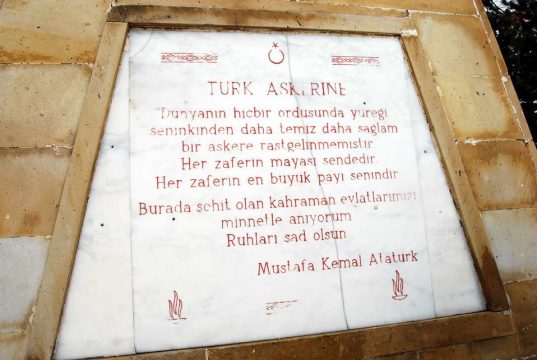 TURK ASKERINE
"Dunyanın hiçbir ordusunda yüreği
seninkinden daha temiz daha sağlam
bir askere rastgelinmemiştir
Her zaferin mayası sendedir.
Her zaferin en büyük payı senindir
Burada şehit olan kahraman evlatlarımızı
minnetle anıyorum
Ruhları şad olsun
Mustafa Kemal Atatürk